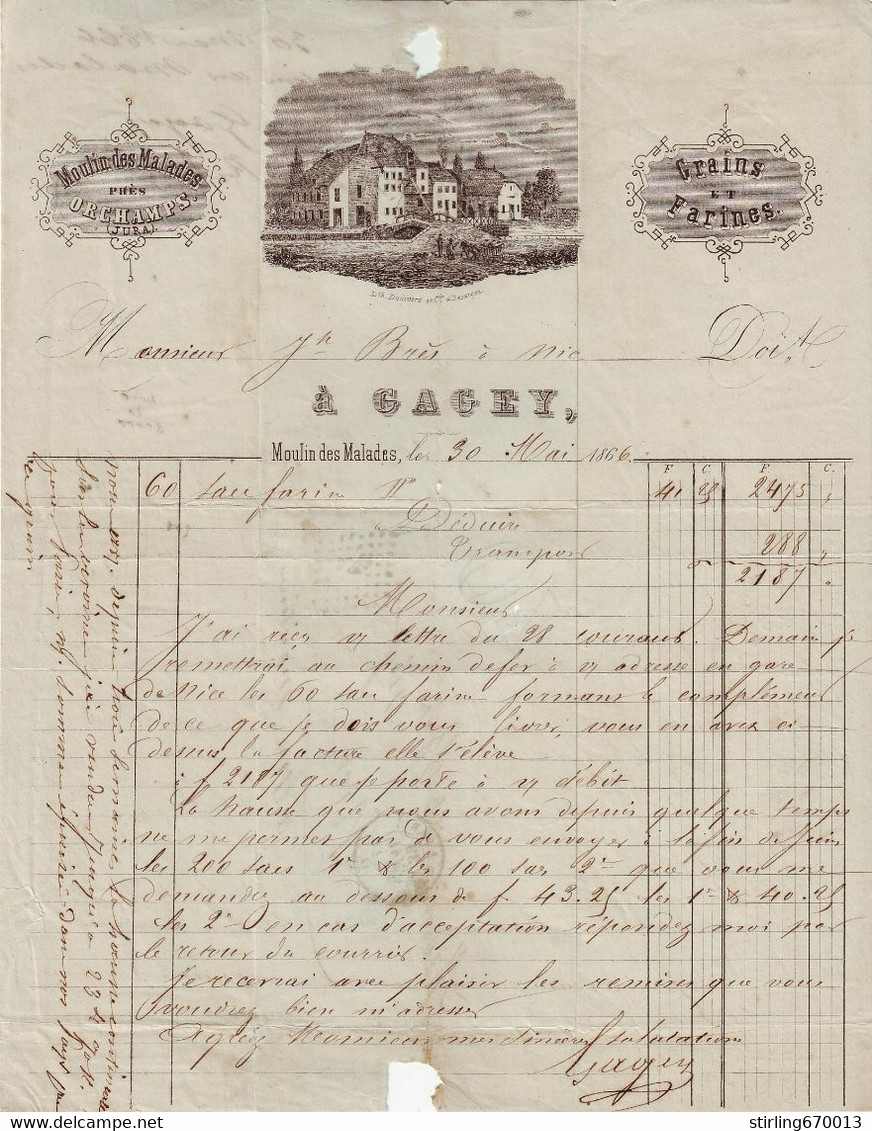 Moulin des Malades
PRÈS
ORCHAMPS.
(JURA).
Grains
ET
Farines.
Lith.
Monsieur Jh Brès à Nice Doit
à GAGEY,
Moulin des Malades, le 30 Mai 1866.
F. C. F. C.
60 sacs farine 41 25 2475 "
à Déduire
Transport 288 "
2187 "
Monsieur
J'ai reçu v/ lettre du 28 courant. Demain je
remettrai au chemin de fer à v/ adresse en gare
de Nice les 60 sacs farine formant le complément
de ce que je dois vous livrer, vous en avez ci-
dessus la facture elle s'élève
à f 2187 que je porte à v/ débit
La hausse que nous avons depuis quelque temps
ne me permet pas de vous envoyer à la fin de Juin
les 200 sacs 1r & les 100 sacs 2me que vous me
demandez au dessous de f. 43.25 les 1r & 40.25
les 2me en cas d'acceptation répondez moi par
le retour du courrier.
Je recevrai avec plaisir les remises que vous
voudrez bien m'adresser
Agréez Monsieur mes sincères salutations
Gagey
depuis trois semaines la hausse continue
j'ai vendu jusqu'à
pour Paris, dans nos pays
de grain
stirling670013